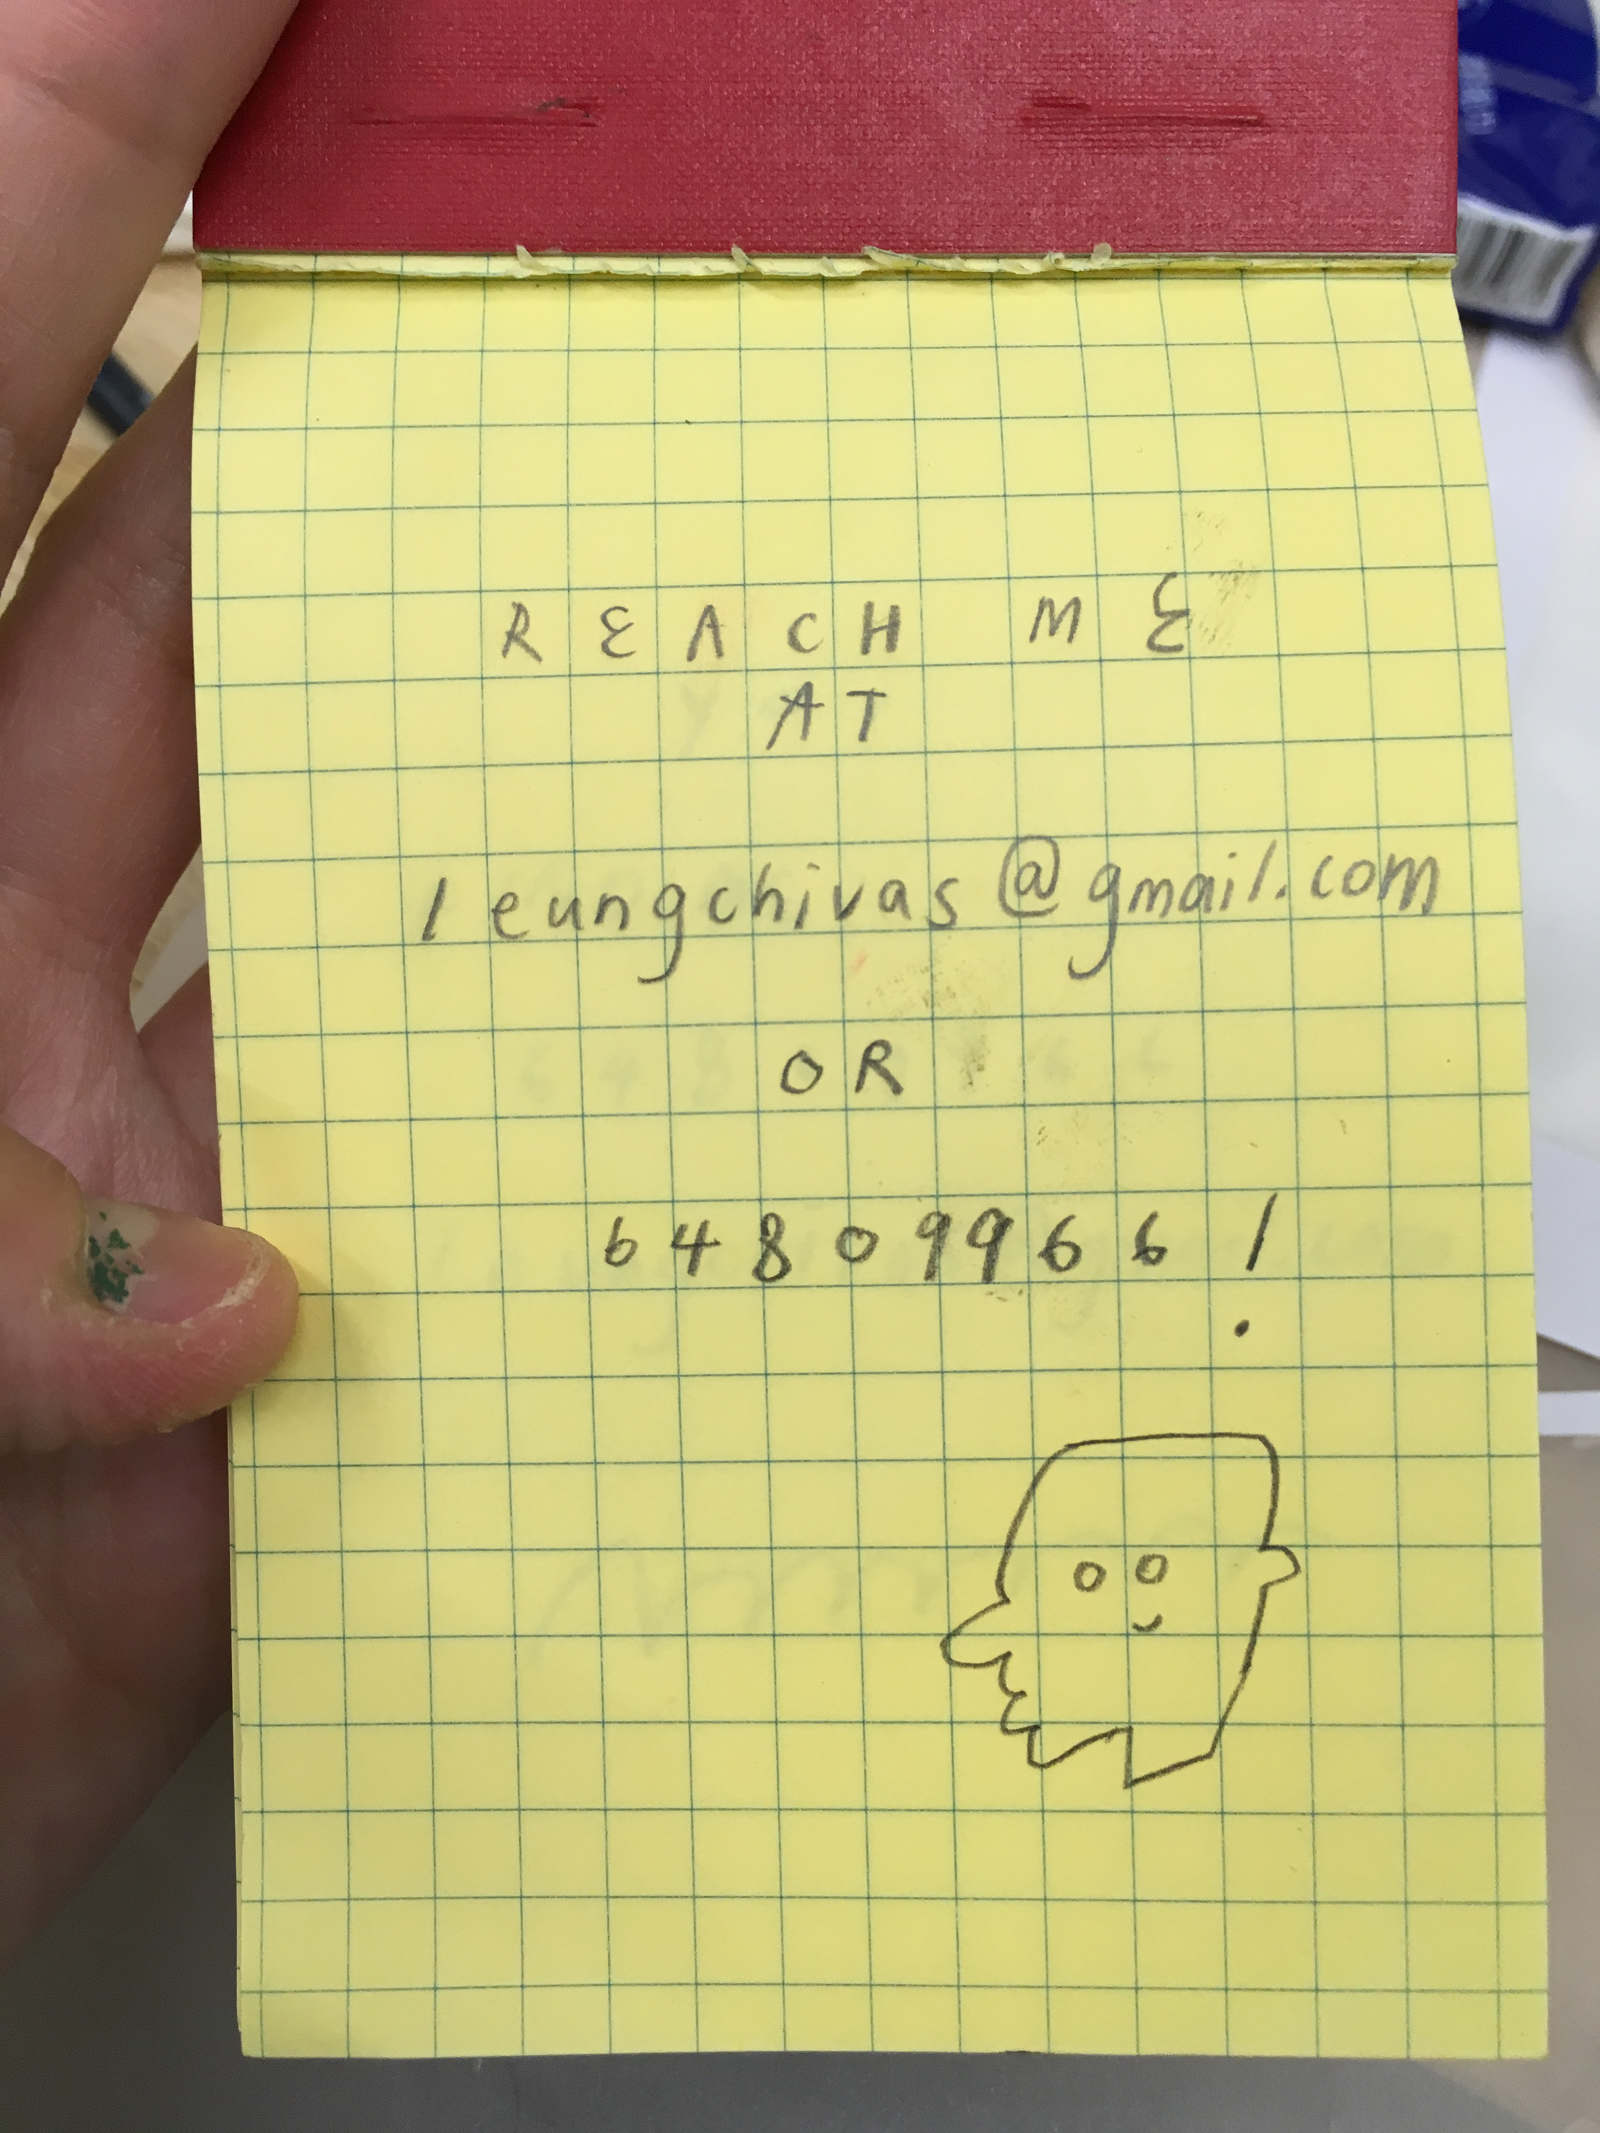 REACH ME
AT
leungchivas@gmail.com
OR
64809966!